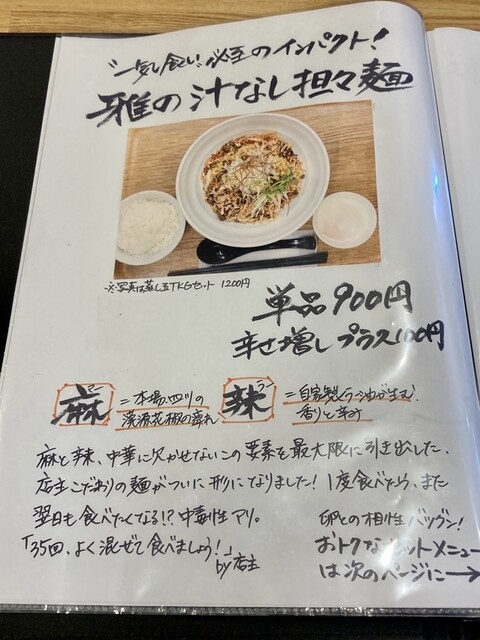 "一気食い"必至のインパクト!
雅の汁なし担々麺
※写真は蒸し玉TKGセット 1200円
単品 900円
辛さ増し プラス100円
麻 マー =本場四川の漢源花椒の痺れ
辣 ラー =自家製ラー油が生む香りと辛み
麻と辣、中華に欠かせないこの要素を最大限に引き出した、
店主こだわりの麺がついに形になりました! 1度食べたら、また
翌日も食べたくなる!?中毒性アリ。
「35回、よく混ぜて食べましょう!」
by店主
卵との相性バツグン!
おトクなセットメニュー
は次のページに→